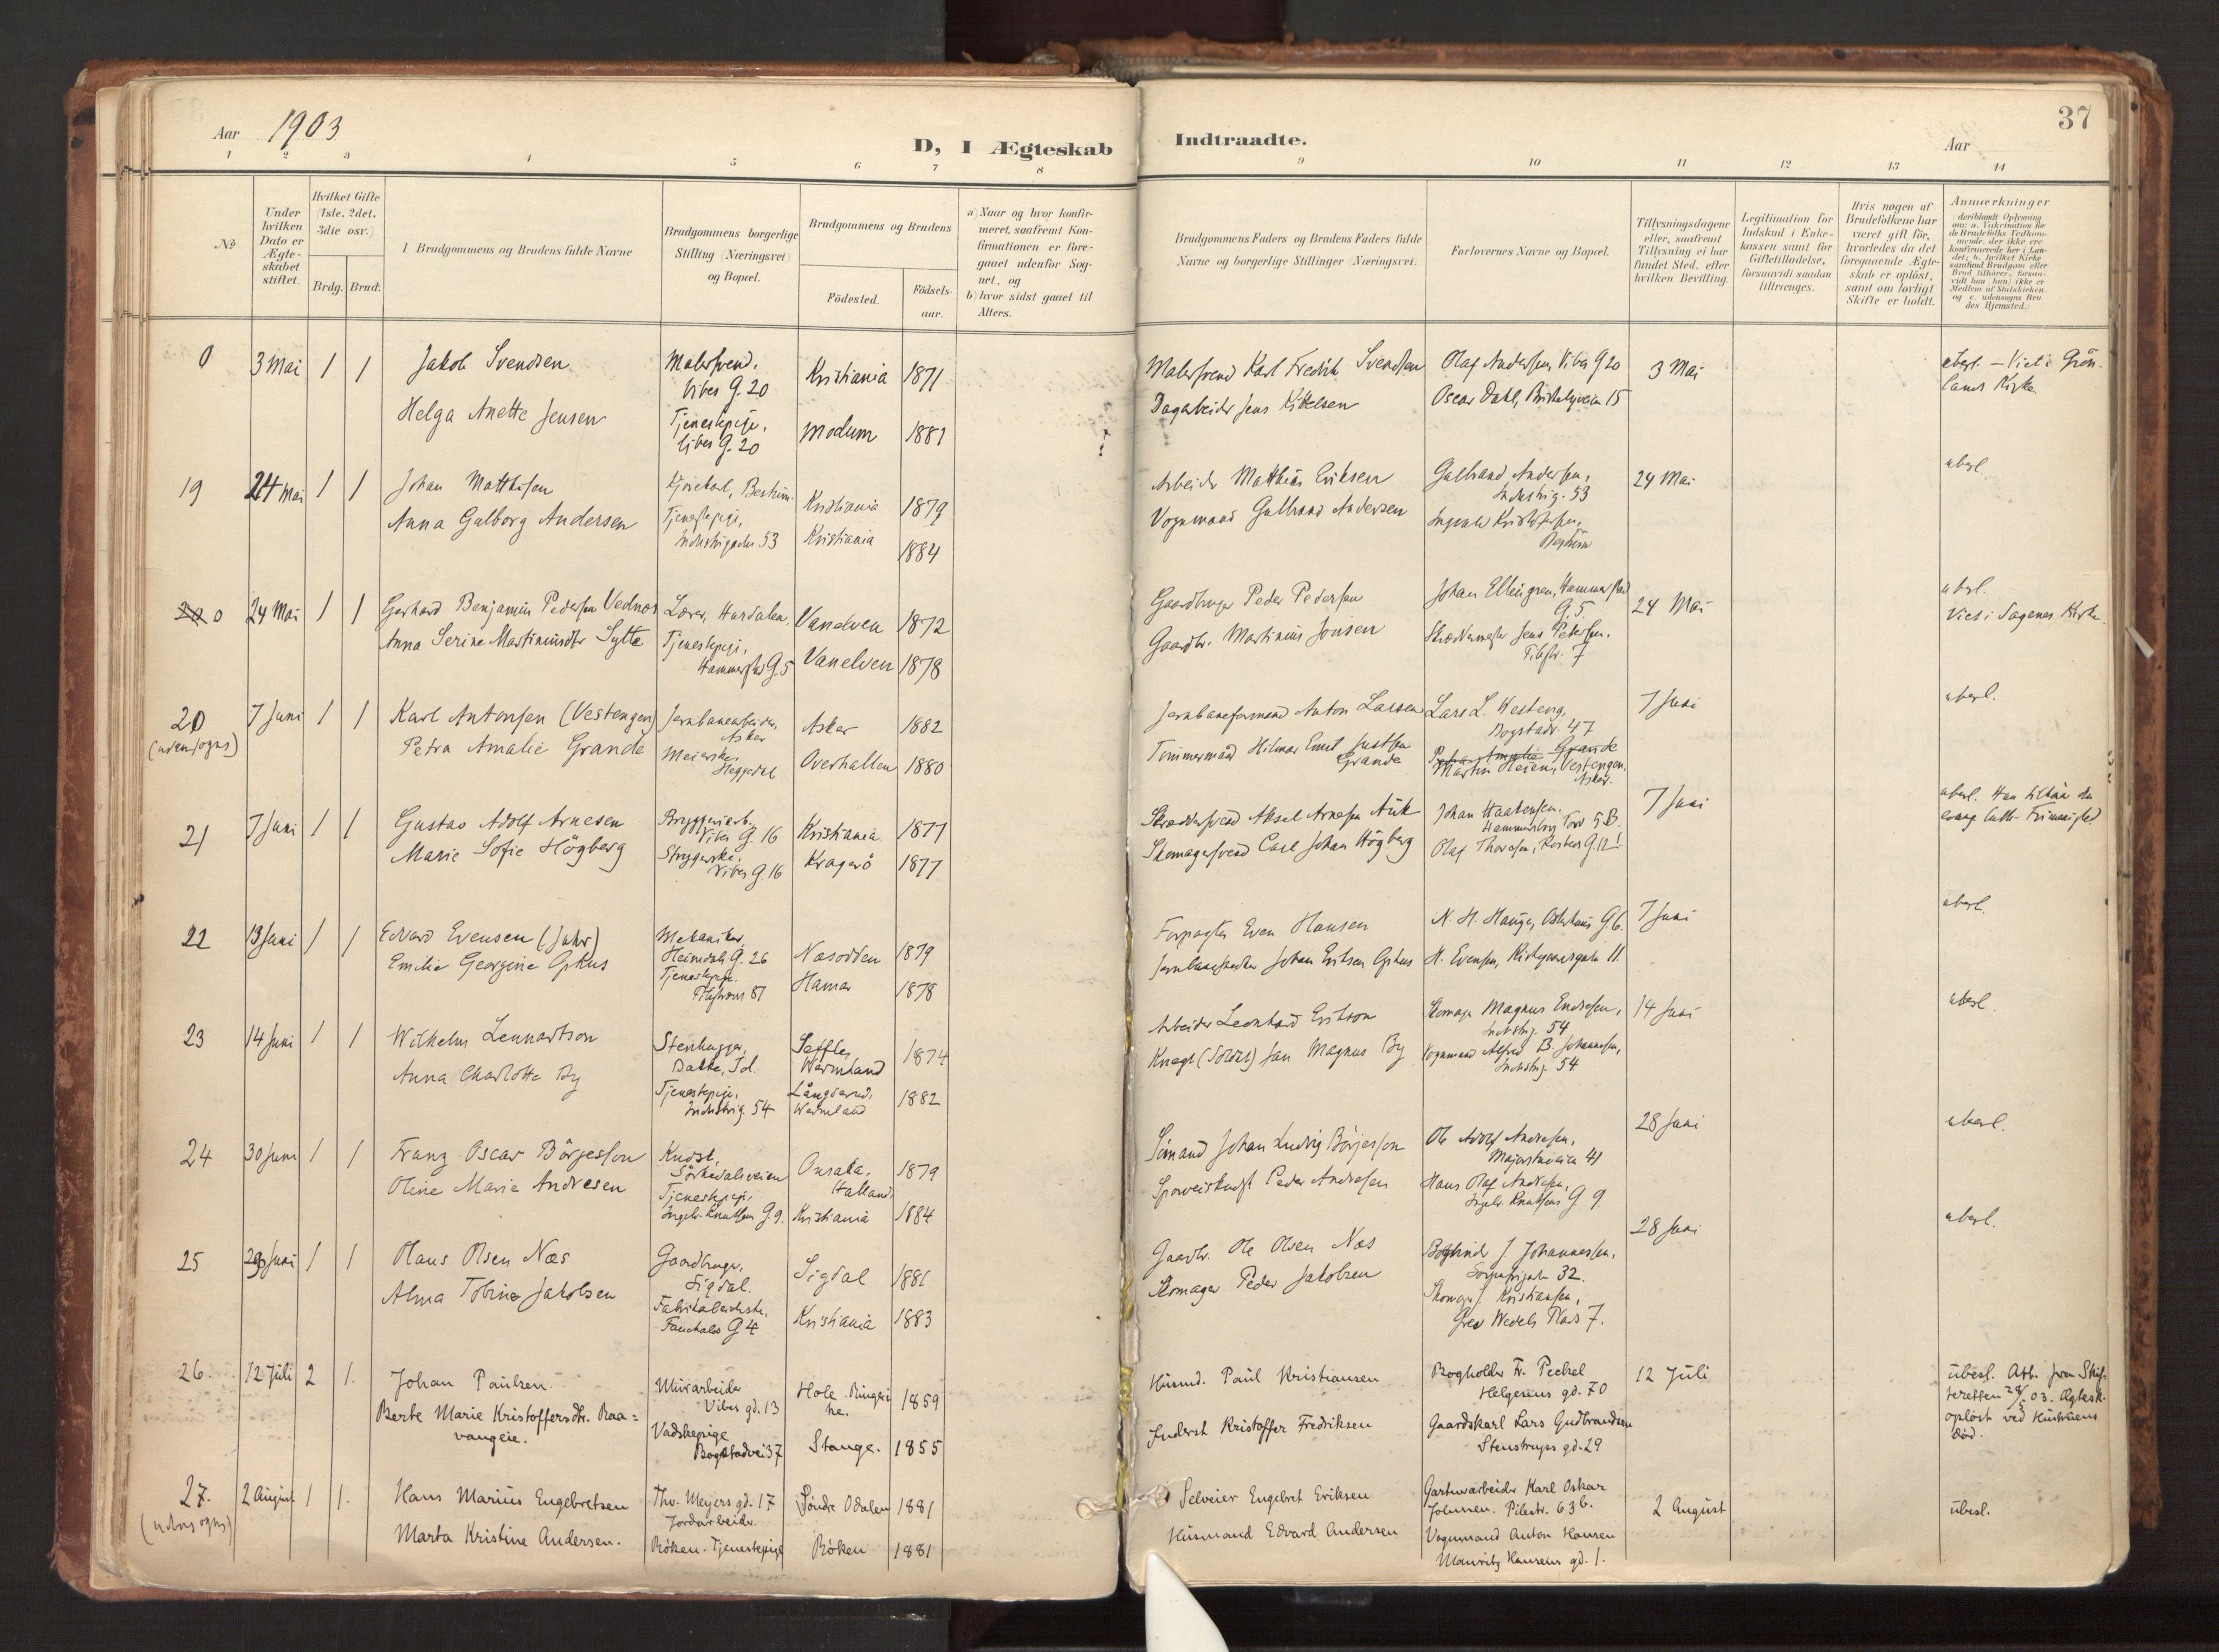 37
Aar 1903
D, I Ægteskab Indtraadte.
Aar
1 2 3 4 5 6 7 8 9 10 11 12 13 14
No
Under hvilken Dato er Ægteskabet stiftet.
Hvilket Gifte (1ste, 2det, 3die osv.)
Brdg. Brud.
1 Brudgommens og Brudens fulde Navne
Brudgommens borgerlige Stilling (Næringsvei) og Bopæl.
Brudgommens og Brudens
Födested.
Födsels-aar.
a) Naar og hvor konfir-
meret, saafremt Kon-
firmationen er fore-
gaaet udenfor Sog-
net, og
b) hvor sidst gaaet til
Alters.
Brudgommens Faders og Brudens Faders fulde
Navne og borgerlige Stillinger (Næringsvei).
Forlovernes Navne og Bopæl.
Tillysningsdagene
eller, saafremt
Tillysning ei har
fundet Sted, efter
hvilken Bevilling.
Legitimation for
Indskud i Enke-
kassen samt for
Giftetilladelse,
forsaavidt saadan
tiltrænges.
Hvis nogen af
Brudefolkene har
været gift för,
hvorledes da det
foregaaende Ægte-
skab er oplöst,
samt om lovligt
Skifte er holdt.
Anmerkninger
0 3 Mai 1 1 Jakob Svendsen Malersvend, Vibes G. 20 Kristiania 1871
Helga Anette Jensen Tjenestepige, Vibes G. 20 Modum 1881
Malersvend Karl Fredrik Svendsen Olaf Andersen, Vibes G 20 3 Mai
Dagarbeider Jens Kittelsen Oscar Dahl, 15
ubesl. – Viet i Grön-
lands Kirke
19 24 Mai 1 1 Johan Matthisen Kjörekarl, Bestum Kristiania 1879
Anna Gulborg Andersen Tjenestepige, Industrigaden 53 Kristiania 1884
Arbeider Matthias Eriksen Gulbrand Andersen, Industrig. 53 24 Mai
Vognmand Gulbrand Andersen Kristofersen, Bestum
ubesl.
0 24 Mai 1 1 Gerhard Benjamin Pedersen Vednes Lærer, Vanelven 1872
Anna Serine Martinusdtr Sylte Tjenestepige, Hammerstad G. 5 Vanelven 1878
Gaardbruger Peder Pedersen Johan Ellingren, Hammerstad G 5 24 Mai
Gaardbr. Martinius Jonsen Skræddermester Jens Petersen, 7
ubesl.
Viet i Sagenes Kirke.
20 7 Juni 1 1 Karl Antonsen (Vestengen) Jernbanearbeider, Asker Asker 1882
(udensogns)
Petra Amalie Grande Meierske, Heggedal Overhallen 1880
Jernbaneformand Anton Larsen Lars L. Westeng, Bogstadv 47 7 Juni
Tömmermand Hilmar Ernst Justsen Grande Petra Amalie Grande
Martin Heien, Vestengen, Asker.
ubesl.
21 7 Juni 1 1 Gustav Adolf Arnesen Bryggeriarb., Vibes G. 16 Kristiania 1877
Marie Sofie Högberg Strygerske, Vibes G 16 Kragerö 1877
Skræddersvend Aksel Arnesen Johan Haakensen, Hammersborg Torv 5 B. 7 Juni
Skomagersvend Carl Johan Högberg Olaf Thoresen
ubesl. Han tilhör den
evang luth. Frimenighed.
22 13 Juni 1 1 Edvard Evensen (Jahr) Mekaniker, Heimdals G. 26 Næsodden 1879
Emilie Georgine Ophus Tjenestepige, 81 Hamar 1878
Forpagter Even Hansen N. H. Hauger, Osterhaus G. 6. 7 Juni
Johan Eriksen Ophus H. Evensen, Kirkegaardsgaden 11.
ubesl.
23 14 Juni 1 1 Wilhelm Lennartson Stenhugger, Bakke, Id. Seffle, Wermland 1874
Anna Charlotte By Tjenestepige, Industrig. 54 Långserud, Wermland 1882
Arbeider Leonhard Erikson Skomager Magnus Endresen, Industrig. 54 14 Juni
Knegt (Soldat) Jan Magnus By Vognmand Alfred B. Johannesen, Industrig. 54
ubesl.
24 30 Juni 1 1 Franz Oscar Börjesson Kudsk, Sörkedalsveien Onsala, Halland 1879
Oline Marie Andresen Tjenestepige, Ingebr. Knutsens G. 9. Kristiania 1884
Sömand Johan Ludvig Börjesson Ole Adolf Andresen, Majorstuveien 41 28 Juni
Sporveiskudsk Peder Andresen Hans Olaf Andresen, Ingebr. Knutsens G 9.
ubesl.
25 Juni 1 1 Olaus Olsen Næs Gaardbruger, Sigdal. Sigdal 1881
Alma Tobine Jakobsen Fabrikarbeiderske, Fauchalds G 4 Kristiania 1883
Gaardbr. Ole Olsen Næs Bogbinder J. Johannessen, 32. 28 Juni
Skomager Peder Jakobsen Skomager J. Kristiansen, Grev Wedels Plads 7.
ubesl.
26. 12 Juli 2 1. Johan Paulsen. Murarbeider Vibes gd. 13 Hole Ringerike. 1859
Berte Marie Kristoffersdtr. Raa=
vangeie. Vadskepige Bogstadvei 37 Stange. 1855
Husmd. Paul Kristiansen Bogholder Fr. Pechel Helgesens gd. 70 12 Juli
Inderst Kristoffer Fredriksen Gaardskarl Lars Gudbrandsen Stenstrups gd. 29
ubesl. Att. fra Skif-
teretten 28/5 03. Ægtesk.
oplöst ved Hustruens
död.
27. 2 August 1 1. Hans Marius Engebretsen Thv. Meyers gd. 17 Jordarbeider Söndre Odalen 1881
(udensogns)
Marta Kristine Andersen. Röken. Tjenestepige Röken 1881
Selveier Engebret Eriksen Gartnerarbeider Karl Oskar
Johnsen. Pilestr. 63 b. 2 August
Husmand Edvard Andersen Vognmand Anton Hansen
Mauritz Hansens gd. 1.
ubesl.